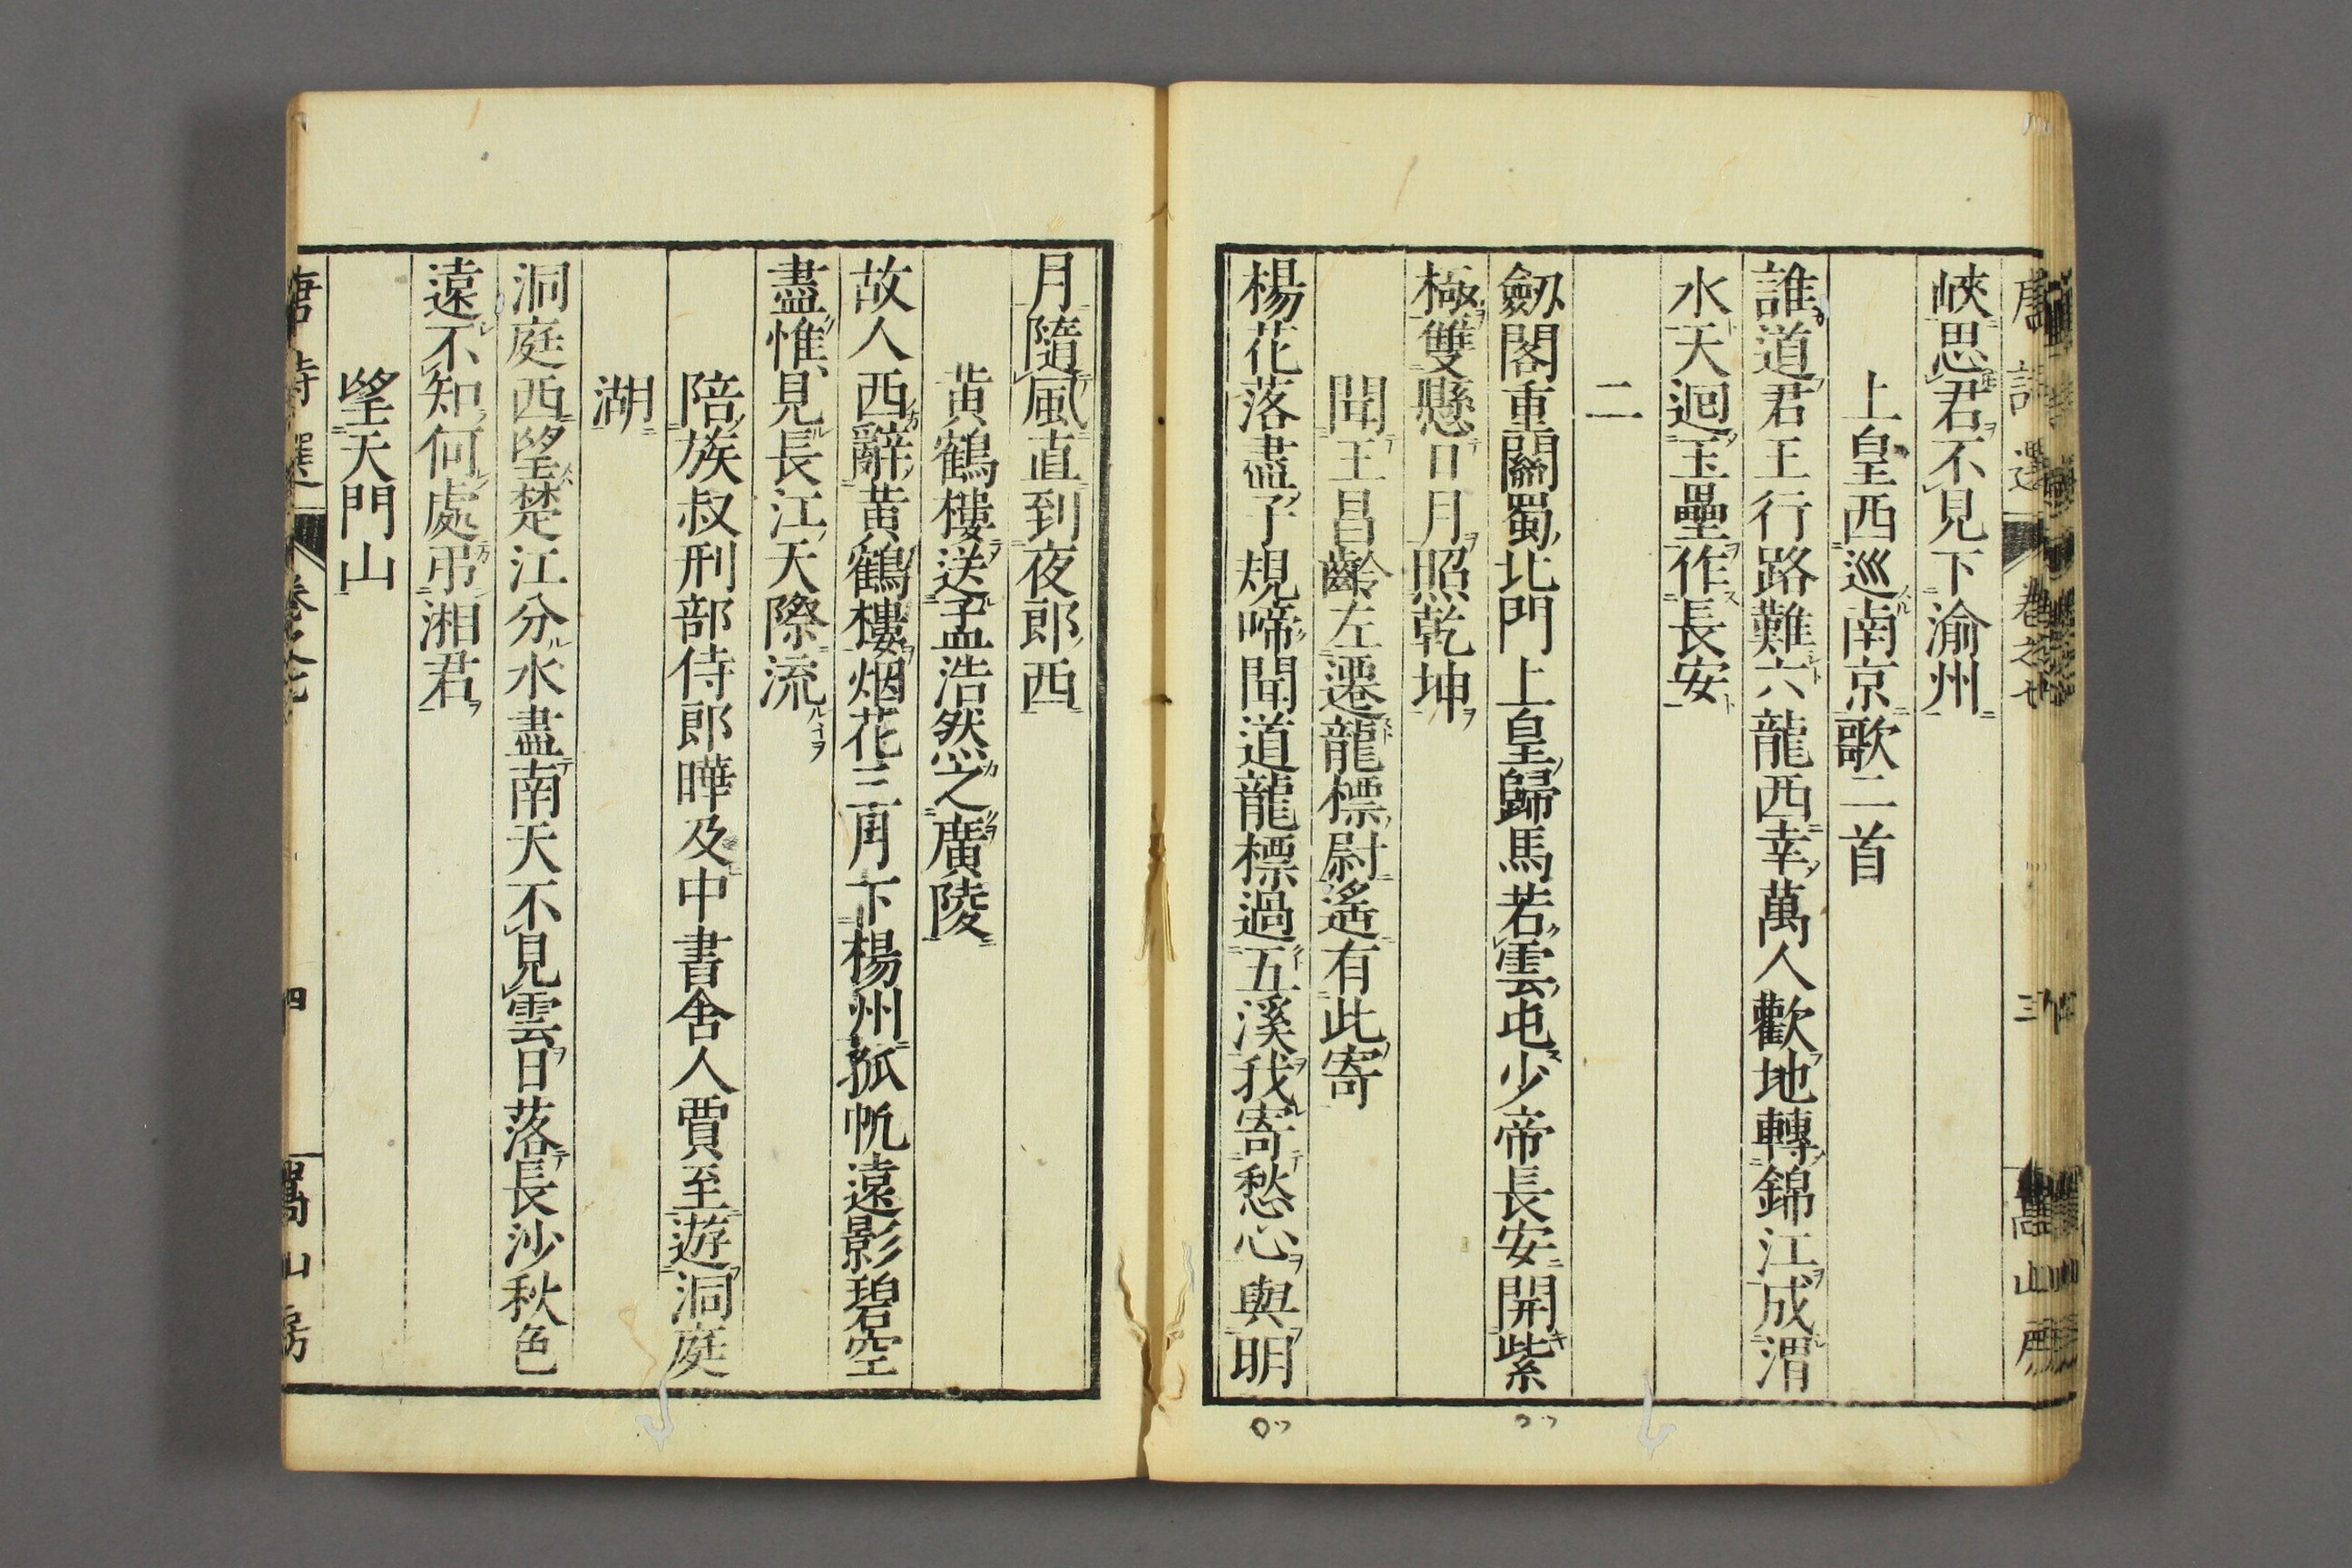 峽思君不見下渝州
上皇西巡南京歌二首
誰道君王行路難六龍西幸萬人歡地轉錦江成渭
水天迴玉壘作長安
二
劔閣重關蜀北門上皇歸馬若雲屯少帝長安開紫
極雙懸日月照乾坤
聞王昌齡左遷龍標尉遙有此寄
楊花落盡子規啼聞道龍標過五溪我寄愁心與明
月隨風直到夜郎西
黄鶴樓送孟浩然之廣陵
故人西辭黄鶴樓烟花三月下楊州孤帆遠影碧空
盡惟見長江天際流
陪族叔刑部侍郎曄及中書舍人賈至遊洞庭
湖
洞庭西望楚江分水盡南天不見雲日落長沙秋色
遠不知何處弔湘君
望天門山
唐詩選 卷之七 四 嵩山房